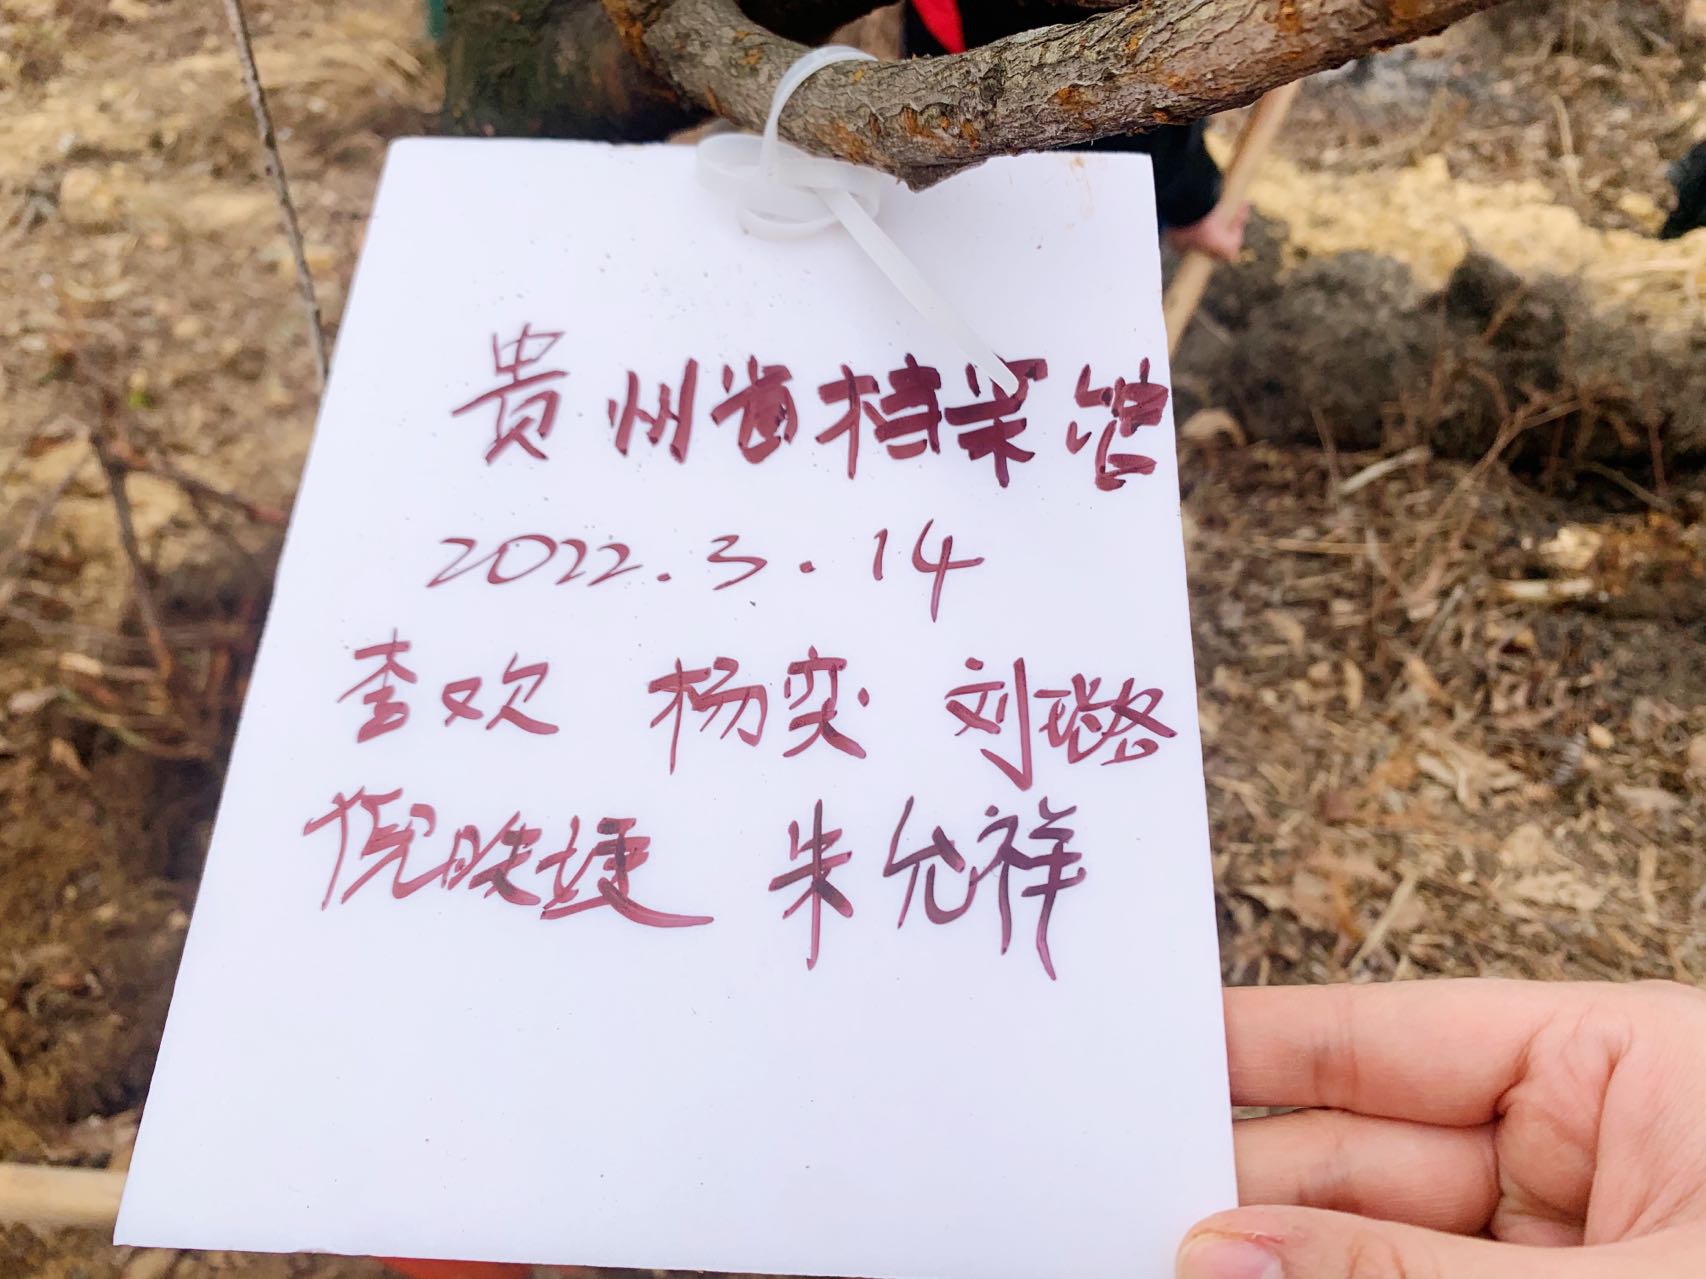 贵州省档案馆
2022.3.14
李欢 杨奕 刘璐
倪映捷 朱允祥